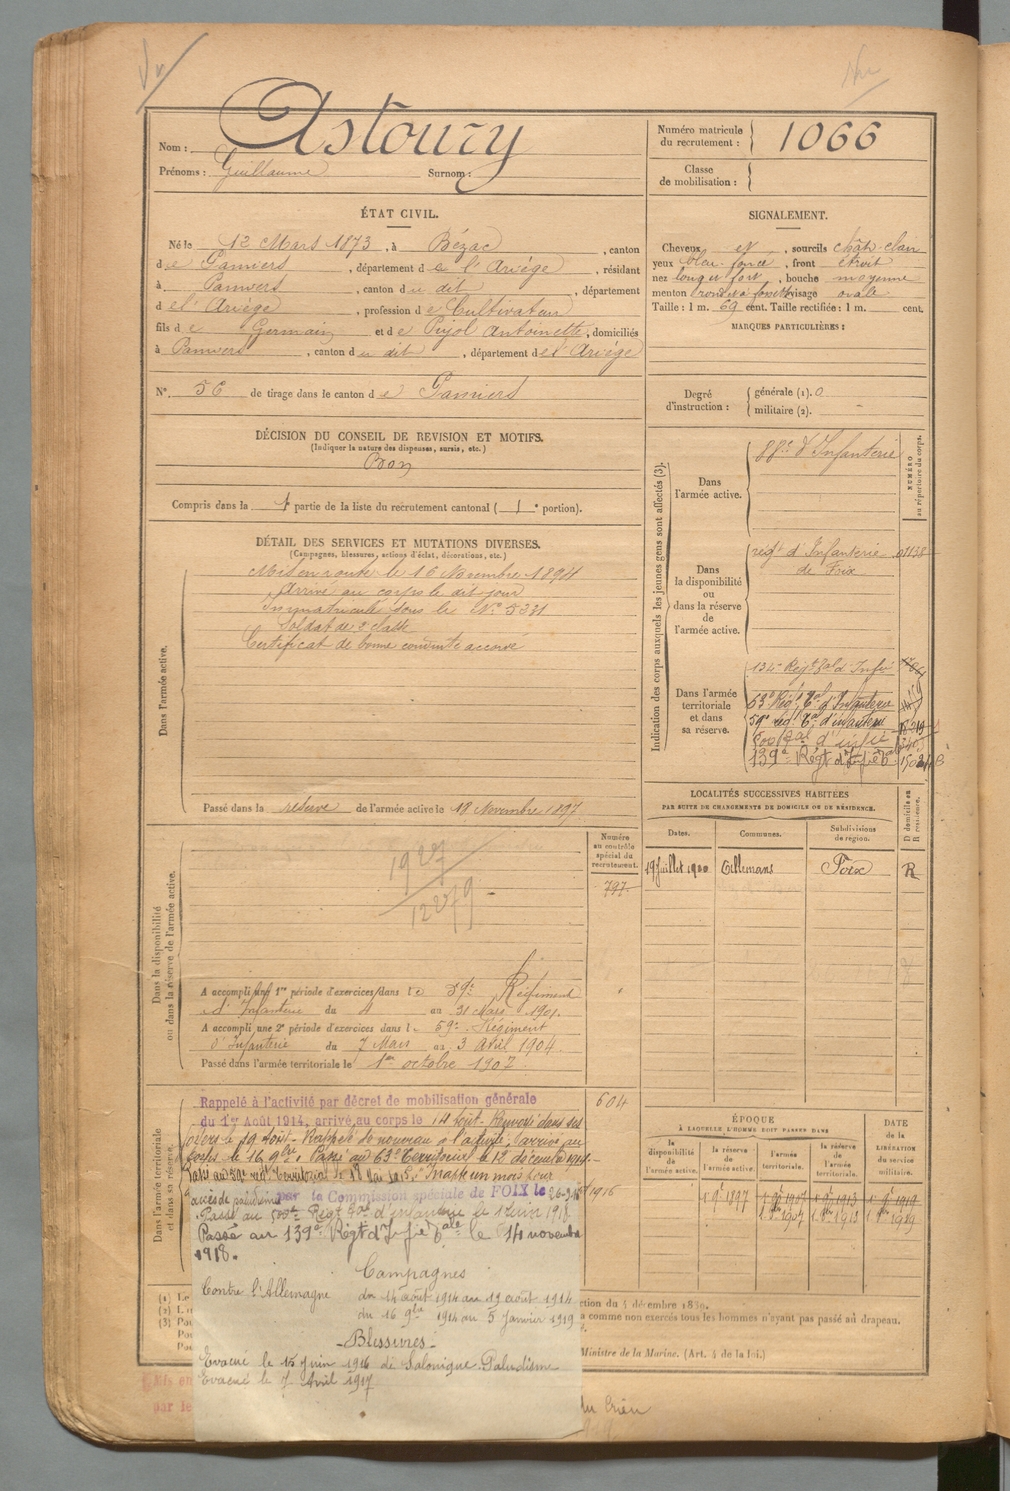 Vu
Nom : Astoury
Prénoms : Guillaume Surnom :
Numéro matricule du recrutement : 1066
Classe de mobilisation :
ÉTAT CIVIL.
Né le 12 Mars 1873, à Bézac, canton
de Pamiers, département de l'Ariége, résidant
à Pamiers, canton du dit, département
de l'Ariége, profession de Cultivateur
fils de Germain et de Pujol Antoinette, domiciliés
à Pamiers, canton du dit, département de l'Ariége
N° 56 de tirage dans le canton de Pamiers
SIGNALEMENT.
Cheveux et, sourcils chât. clair
yeux bleu foncé, front étroit
nez long et fort, bouche moyenne
menton rond et à fossette visage ovale
Taille : 1 m. 69 cent. Taille rectifiée : 1 m. cent.
MARQUES PARTICULIÈRES :
Degré d'instruction : générale (1). 0
militaire (2). -
DÉCISION DU CONSEIL DE REVISION ET MOTIFS.
(Indiquer la nature des dispenses, sursis, etc.)
Bon
Compris dans la 1e partie de la liste du recrutement cantonal (1e portion).
DÉTAIL DES SERVICES ET MUTATIONS DIVERSES.
(Campagnes, blessures, actions d'éclat, décorations, etc.)
Dans l'armée active.
Mis en route le 16 Novembre 1894
Arrivé au corps le dit jour
Immatriculé sous le N° 5331
Soldat de 2e classe
Certificat de bonne conduite accordé
Passé dans la réserve de l'armée active le 18 Novembre 1897
Indication des corps auxquels les jeunes gens sont affectés (3).
NUMÉRO au répertoire du corps.
Dans l'armée active.
88e d'Infanterie
Dans la disponibilité ou dans la réserve de l'armée active.
régt d'Infanterie 01138
de Foix
Dans l'armée territoriale et dans sa réserve.
134e Régt Tal d'Infie
63e Régt Tal d'Infanterie
59e régt Tal d'infanterie
500 Tal d'infie
139e Régt d'Infie Tale
LOCALITÉS SUCCESSIVES HABITÉES
PAR SUITE DE CHANGEMENTS DE DOMICILE OU DE RÉSIDENCE.
Dates. Communes. Subdivisions de région. D domicile ou R résidence.
19 Juillet 1900 Foix R
Numéro au contrôle spécial du recrutement.
797
Dans la disponibilité ou dans la réserve de l'armée active.
1927
12279
A accompli une 1re période d'exercices dans le 59e Régiment
d'Infanterie du 4 au 31 Mars 1901.
A accompli une 2e période d'exercices dans le 59e Régiment
d'Infanterie du 7 Mars au 3 Avril 1904.
Passé dans l'armée territoriale le 1er octobre 1907
Dans l'armée territoriale et dans sa réserve.
604
Rappelé à l'activité par décret de mobilisation générale
du 1er Août 1914, arrivé au corps le 14 août. Renvoyé dans ses
foyers le 19 août. Rappelé de nouveau à l'activité, arrivé au
corps le 16 9bre. Passé au 63e Territorial le 12 décembre 1914.
Passé au 59e régt Territorial le Inapte un mois pour
accès de paludisme par la Commission spéciale de FOIX le 26-9-16 1916
Passé au 500e Régt Tal d'infanterie le 1 Juin 1918
Passé au 139e Régt d'Infie Tale le 14 novembre
1918.
Campagnes
Contre l'Allemagne du 14 août 1914 au 19 août 1914
du 16 9bre 1914 au 5 Janvier 1919
Blessures
Evacué le 15 juin 1916 de Salonique. Paludisme
Evacué le 7 Avril 1917
ÉPOQUE
À LAQUELLE L'HOMME DOIT PASSER DANS
la disponibilité de l'armée active. la réserve de l'armée active. l'armée territoriale. la réserve de l'armée territoriale. DATE de la LIBÉRATION du service militaire.
1 9e 1897 1 9e 1907 1 9e 1913 1 9e 1919
1 8e 1907 1 8e 1913 1 8e 1919
ction du 4 décembre 1889.
a comme non exercés tous les hommes n'ayant pas passé au drapeau.
Ministre de la Marine. (Art. 4 de la loi.)
par le